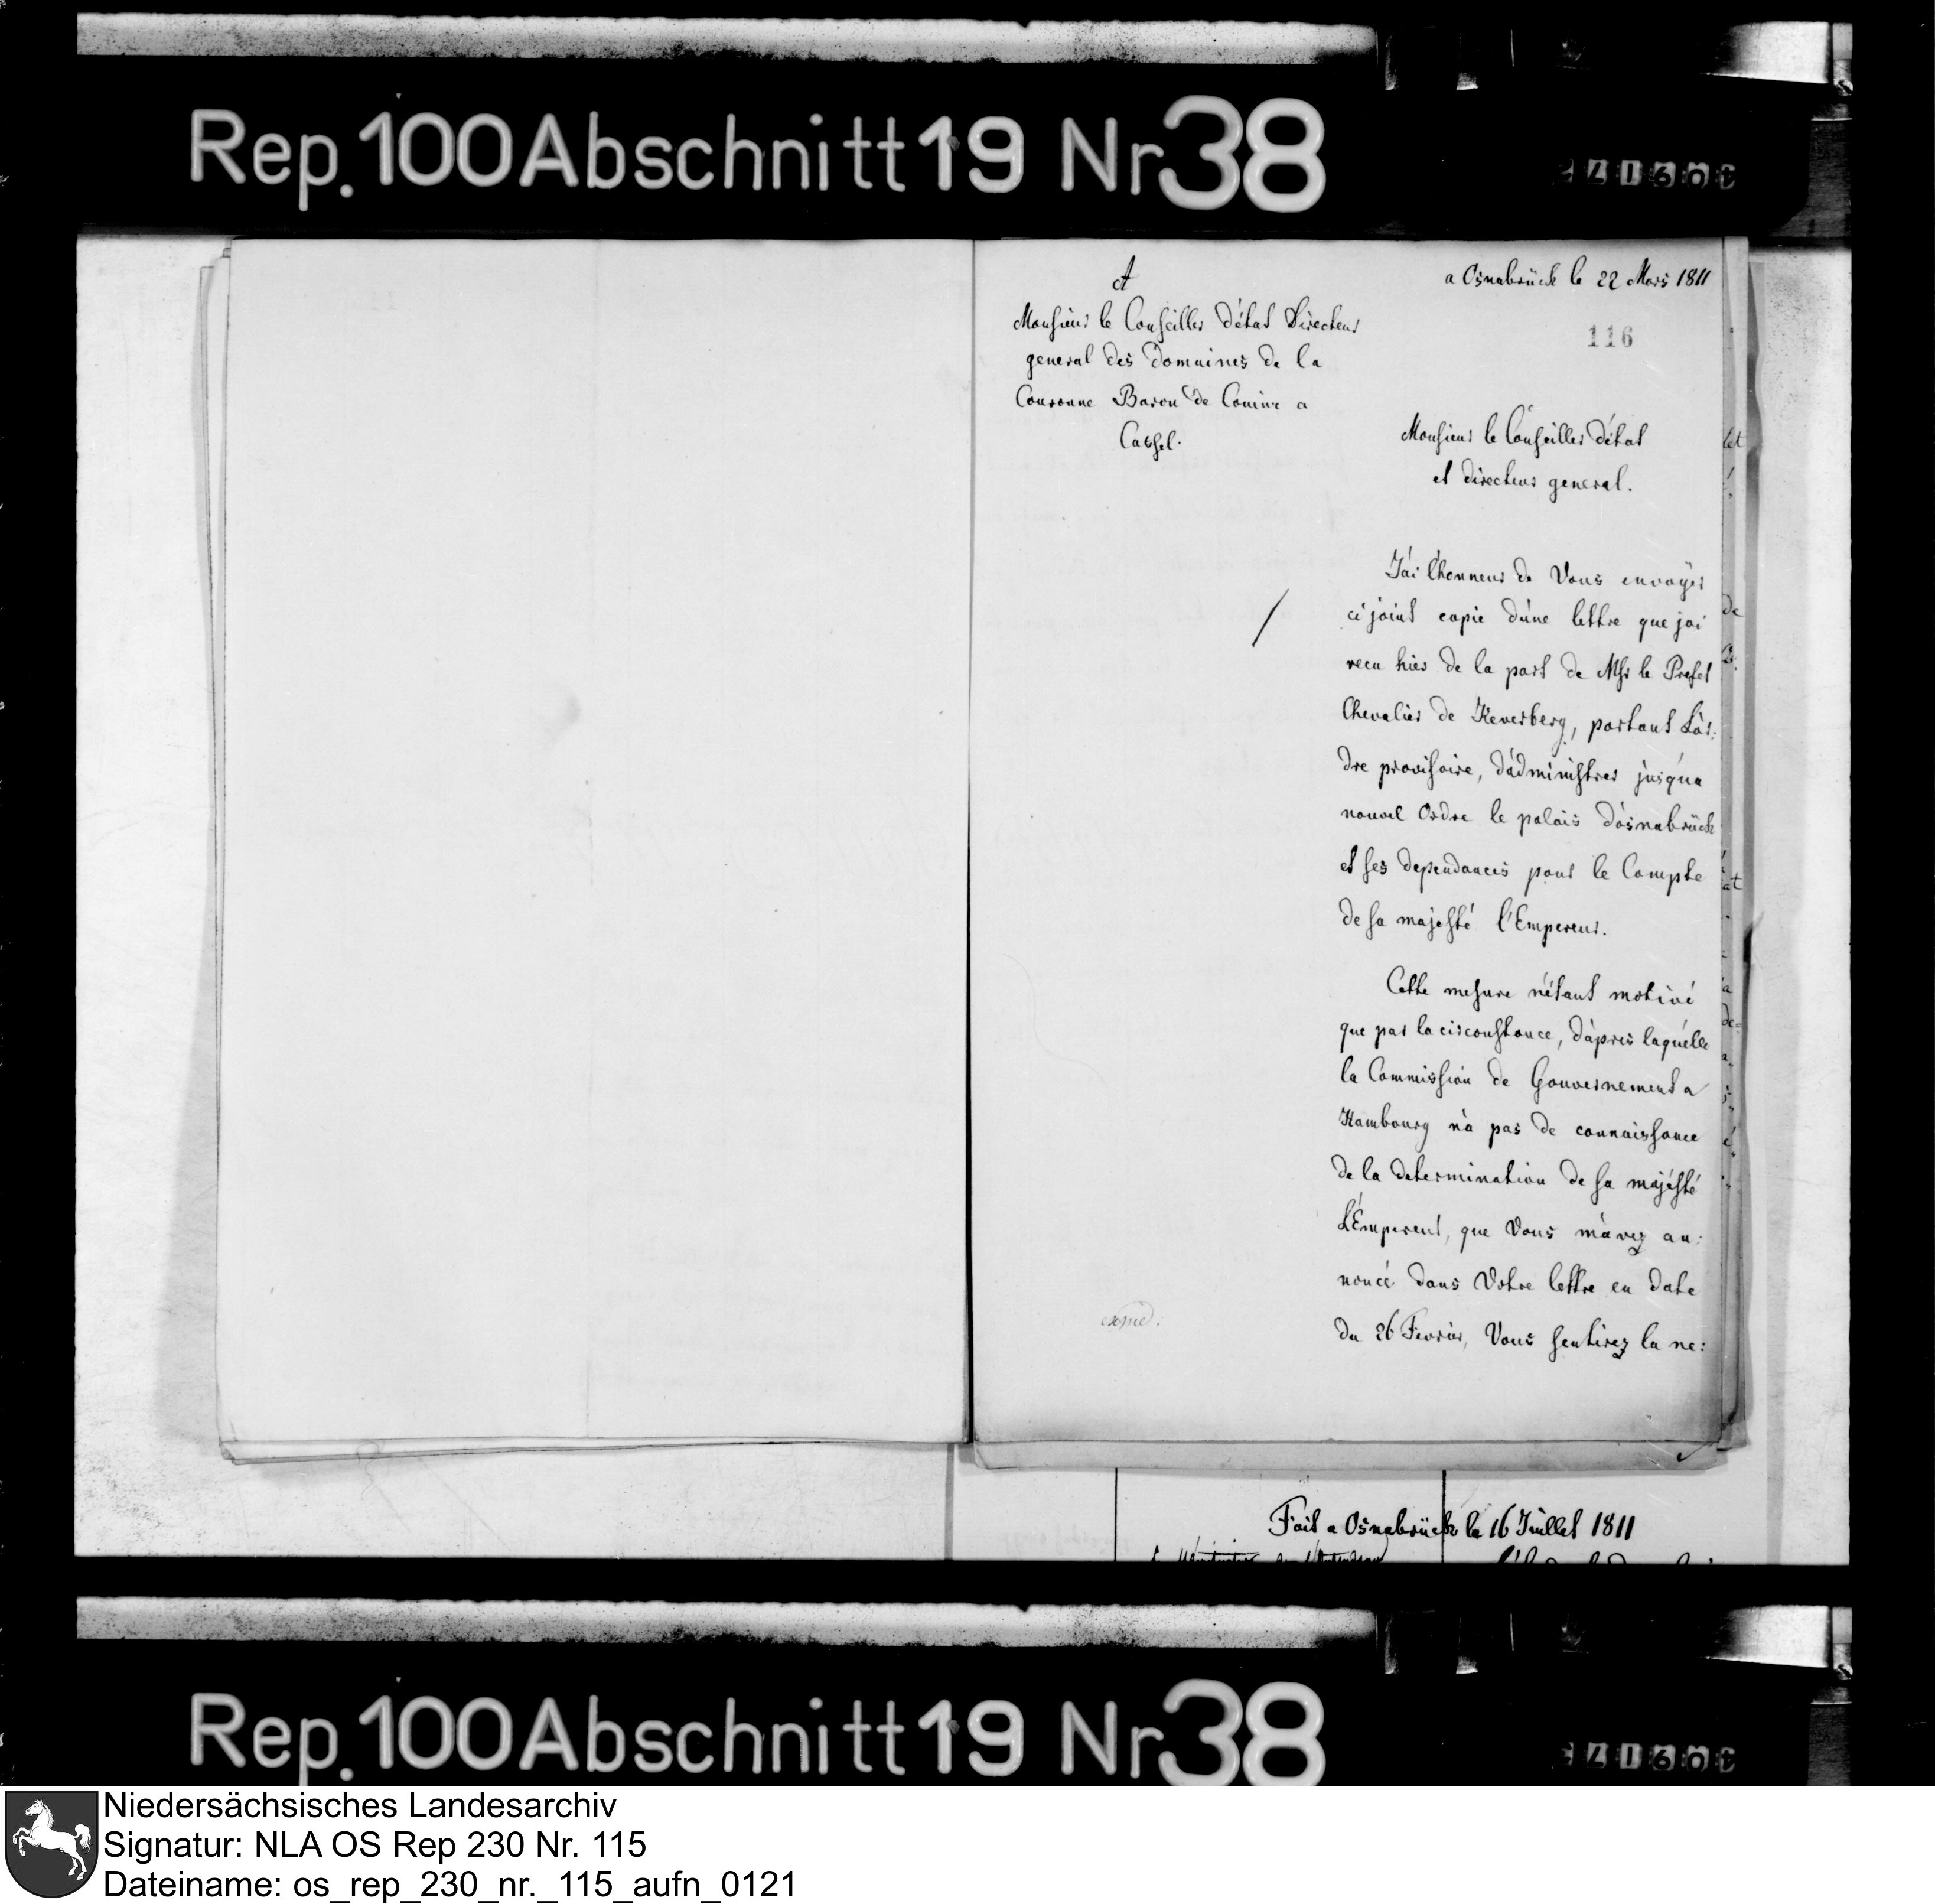 Rep. 100 Abschnitt 19 Nr 38
A
Monsieur le Conseiller d'état Directeur
general des Domaines de la
Couronne Baron de Coninx a
Cassel.
a Osnabrück le 22 Mars 1811
116
Monsieur le Conseiller d'état
et directeur general.
J'ai l'honneur de Vous envoÿer
ci joint copie d'une lettre que jai
recu hier de la part de Msr le Prefet
Chevalier de Keverberg, portant L'or:
dre provisoire, d'administrer jusqu'a
nouvel Ordre le palais d'osnabrück
et ses dependances pour le Compte
de sa majesté l'Empereur.
Cette mesure n'étant motivé
que par la circonstance, d'apres laquelle
la Commission de Gouvernement a
Hambourg n'a pas de connaissance
de la determination de sa majésté
L'Empereur, que Vous m'avez an:
noncé dans Votre lettre en date
du 26 Fevrier, Vous sentirez la ne:
exped.
Fait a Osnabrück le 16 Juillet 1811
Rep. 100 Abschnitt 19 Nr 38
Niedersächsisches Landesarchiv
Signatur: NLA OS Rep 230 Nr. 115
Dateiname: os_rep_230_nr._115_aufn_0121